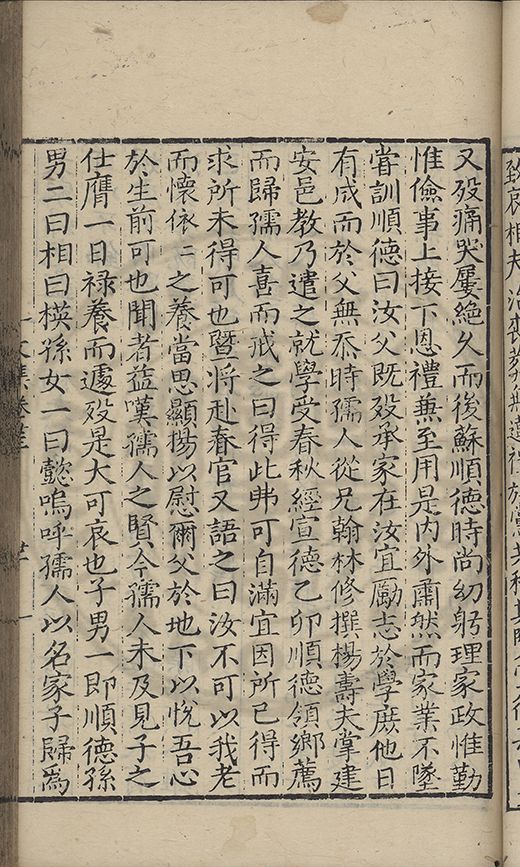 又殁痛哭屢絶久而後蘇順德時尚幼躬理家政惟勤
惟儉事上接下恩禮兼至用是内外肅然而家業不墜
甞訓順德曰汝父既殁承家在汝宜勵志於學庶他日
有成而於父無忝時孺人從兄翰林修撰楊壽夫掌建
安邑教乃遣之就學受春秋經宣德乙卯順德領鄉薦
而歸孺人喜而戒之曰得此弗可自滿宜因所已得而
求所未得可也暨将赴春官又語之曰汝不可以我老
而懷依〻之養當思顯揚以慰爾父於地下以悦吾心
於生前可也聞者益嘆孺人之賢今孺人未及見子之
仕膺一日禄養而遽殁是大可哀也子男一即順德孫
男二曰相曰模孫女一曰懿嗚呼孺人以名家子歸為